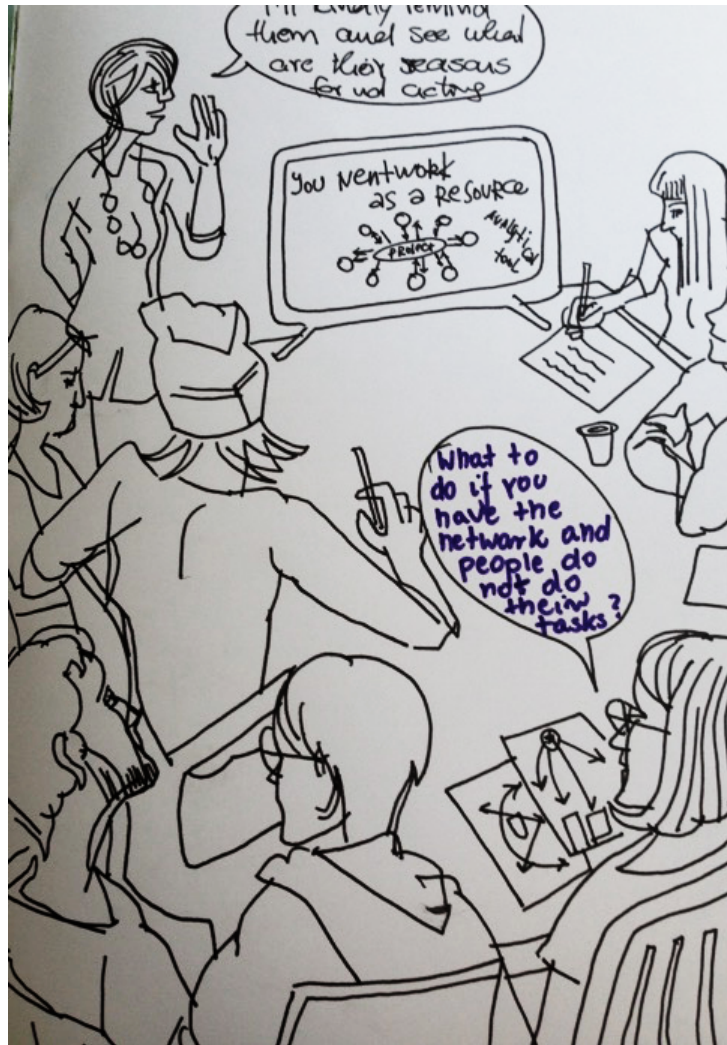 kindly remind
them and see what
are their reasons
for not acting
You Nentwork
as a Resource
Analytical
tool
PROJECT
What to
do if you
have the
network and
people do
not do
theiw
tasks?